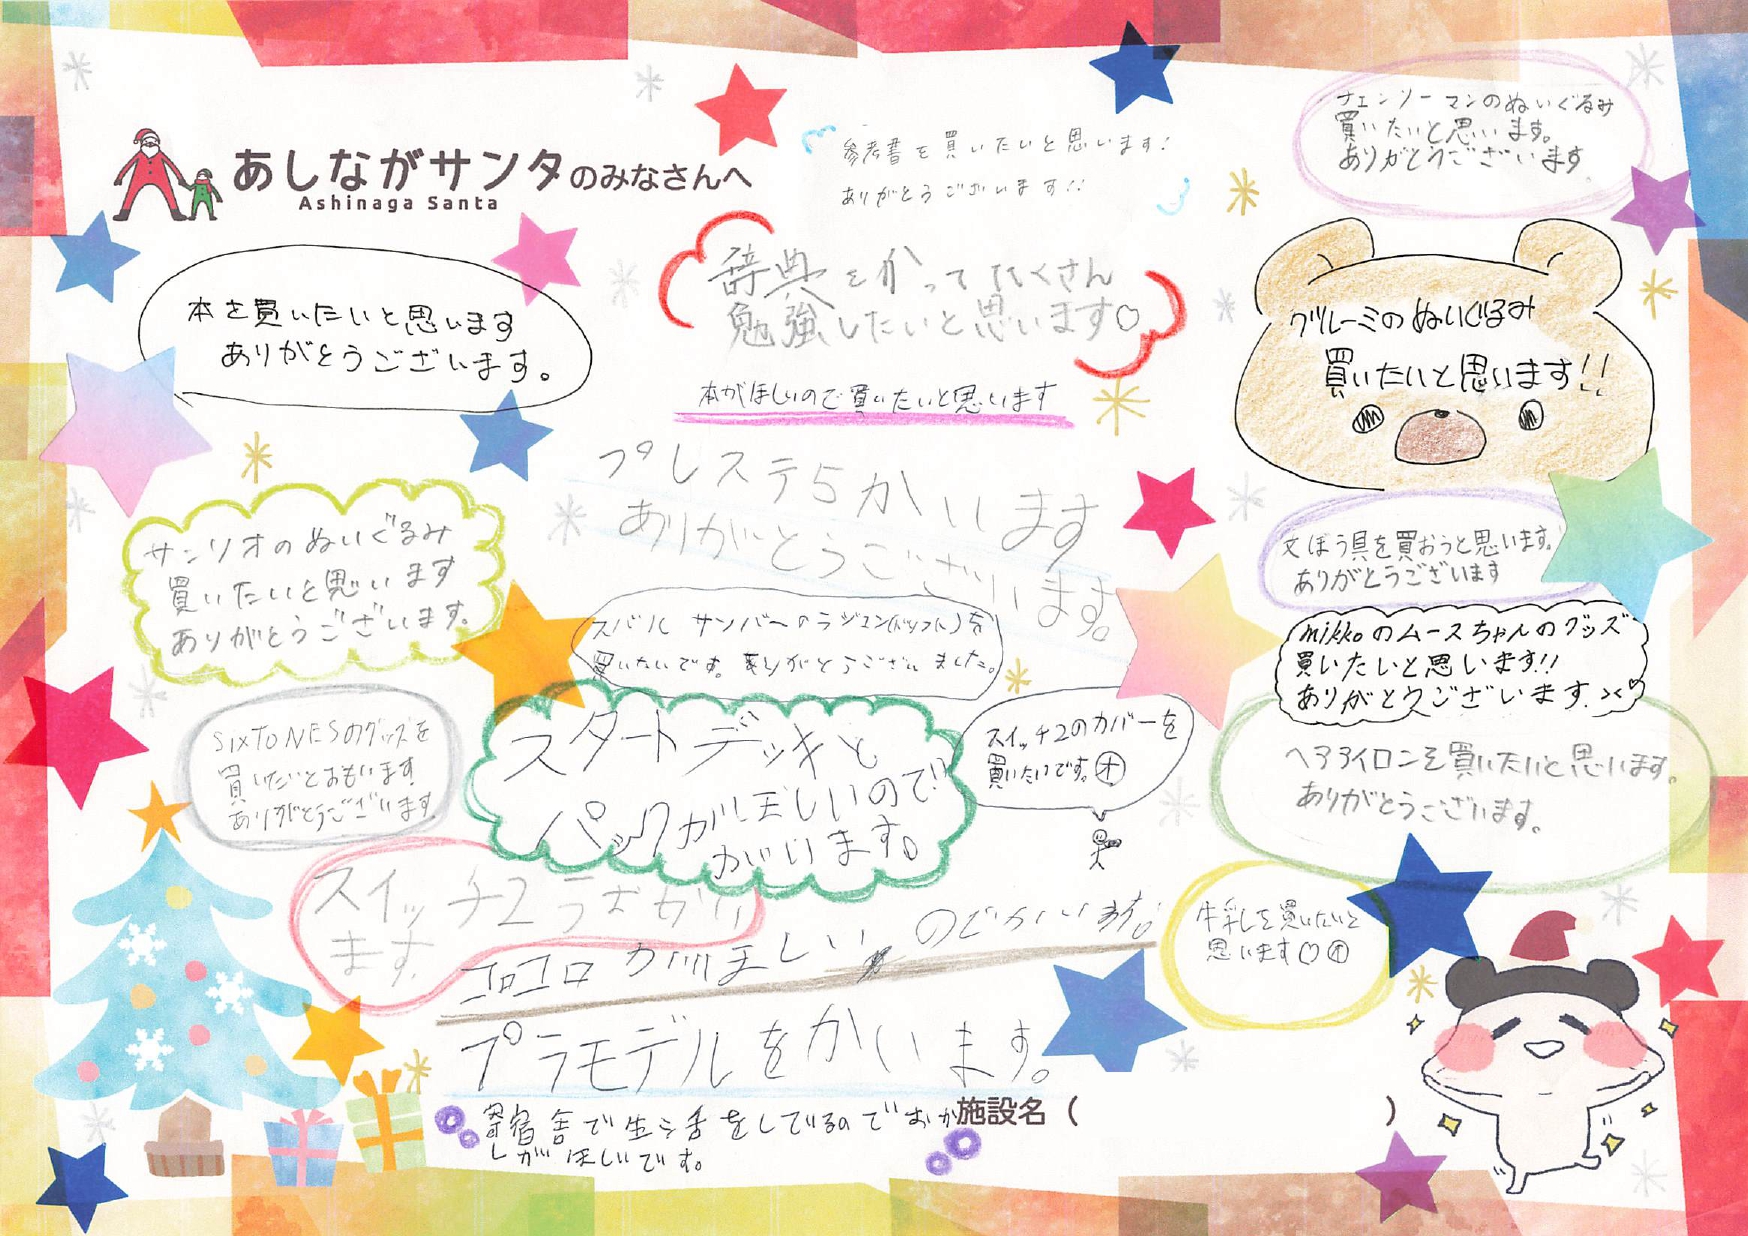 あしながサンタのみなさんへ
Ashinaga Santa
参考書を買いたいと思います!
ありがとうございます!!
チェンソーマンのぬいぐるみ
買いたいと思います。
ありがとうございます
本を買いたいと思います
ありがとうございます。
辞典をかってたくさん
勉強したいと思います♡
グルーミーのぬいぐるみ
買いたいと思います!!
本がほしいので買いたいと思います
プレステ5かいます
ありがとうございます。
サンリオのぬいぐるみ
買いたいと思います
ありがとうございます。
文ぼう具を買おうと思います。
ありがとうございます
スバル サンバーのラジコン()を
買いたいです。ありがとうございました。
mikkoのムースちゃんのグッズ
買いたいと思います!!
ありがとうございます。><♡
SixTONESのグッズを
買いたいとおもいます
ありがとうございます。
スタートデッキと
パックがほしいので!!
かいます。
スイッチ2のカバーを
買いたいです。オ
ヘアアイロンを買いたいと思います。
ありがとうございます。
スイッチ2
ます。
コロコロがほしいのでかいます。
牛乳を買いたいと
思います♡オ
プラモデルをかいます。
寄宿舎で生活をしているのでおか
しがほしいです。
施設名( )